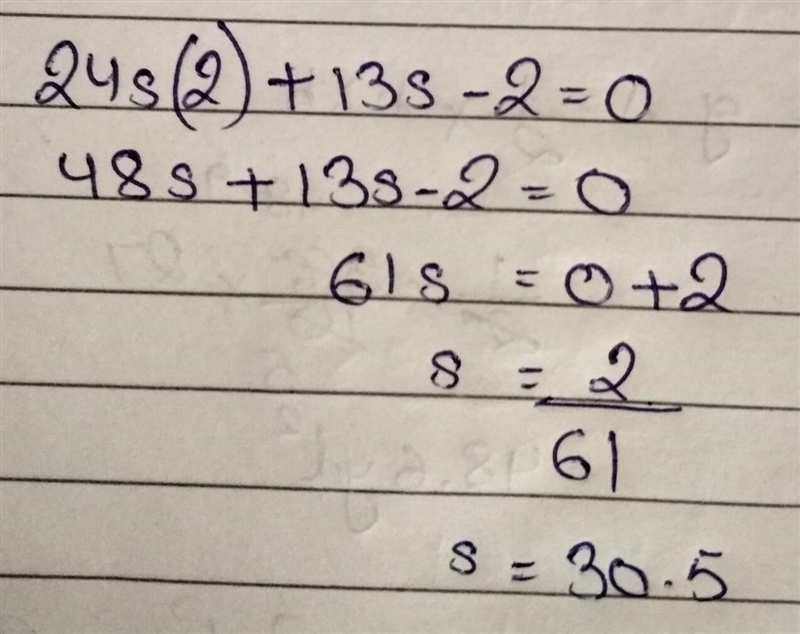 24s(2) + 13s - 2 = 0
48s + 13s - 2 = 0
61s = 0 + 2
s = 2
61
s = 30.5